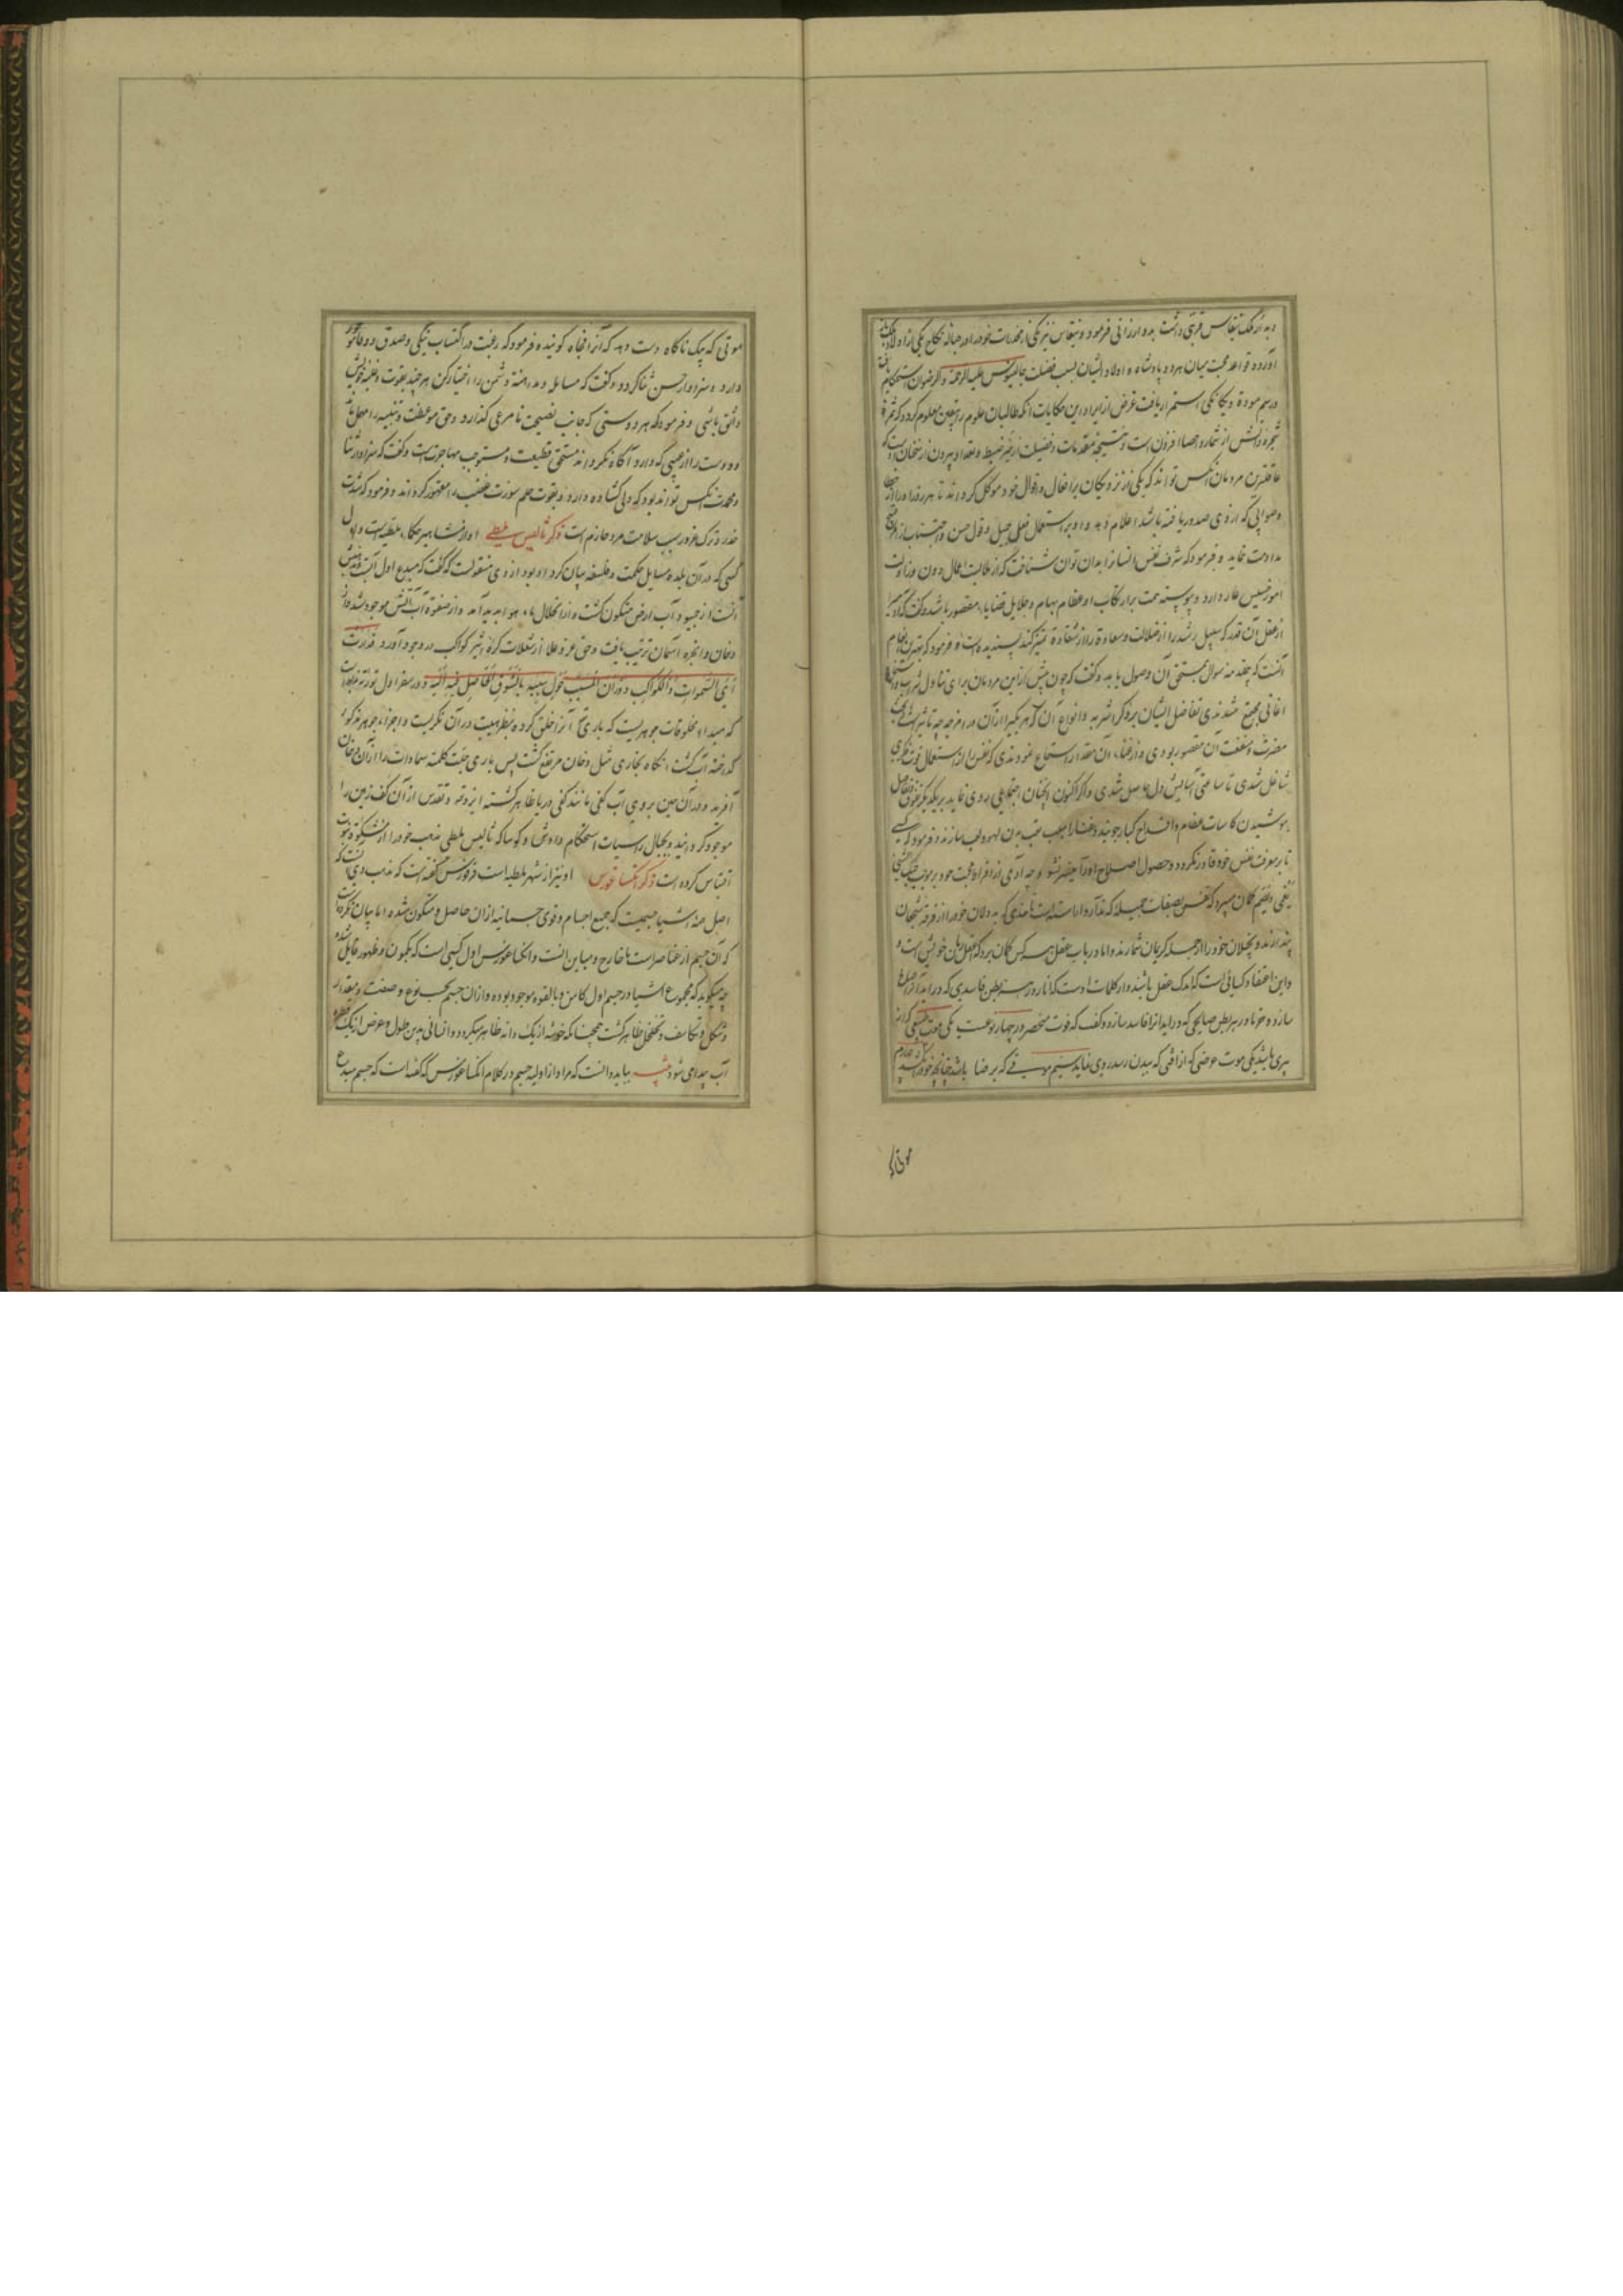 دیه از ملک نیقاس قری داشت بدو ارزانی فرمود و نیقاس نیز یکی از مخدرات خود را در حباله نکاح یکی از اولاد
آورده قواعد محبت میان هر دو پادشاه و اولاد ایشان بسبب فضیلت جالینوس علیه الرحمة والرضوان استحکام
و رسم مودة و یگانگی استمرار یافت غرض از ایراد این حکایات آنکه طالبان علوم را یقین معلوم گردد که ثمرهٔ
شجره دانش از شمار و احصا افزون است و نتیجه مقدمات فضیلت از حیز ضبط و تعداد بیرون از سخنان اوست که
عاقلترین مردمان آنکس تواند که یکی از نزدیکان بر افعال و اقوال خود موکل گرداند تا هر روز او را از خطا
و صوابی که از وی صدور یافته باشد اعلام دهد و او بر استعمال فعل جمیل و قول حسن و اجتناب از قبیح
مداومت نماید و فرمود که شرف نفس انسانرا بدان توان شناخت که از ملابست اعمال دون و مزاولت
امور خسیس عار دارد و پیوسته همت بر ارتکاب او عظام مهام و جلایل قضایا مقصور باشد و گفت که
از عقل آن قدر که سبیل رشد را از ضلالت و سعادة را از شقاوة تمیز کند پسندیده است و فرمود که بهترین انعام
آنست که بی مقدمه سوال مستحق آن وصول یابد و گفت که چون پیش ازین مردمان برای تناول شراب و استماع
اغانی مجتمع شدندی تفاضل ایشان بر ذکر اشربه و انواع آن که هر یکی را از آن در امزجه چه تاثیر است
مضرت و منفعت آن مقصور بودی و از غنا، آن مقدار استماع نمودندی که نفس را از استعمال قوت فکری
شاغل شدی تا ساعتی آسایش دل حاصل شدی و اگر اکنون آنچنان اجتماعی روی نماید بر یکدیگر تفوق و تفاضل
بنوشیدن کاسات عظام و اقداح کبار جویند و غنا را سبب لهو و لعب سازند و فرمود کسی
تا بر معرفت نفس خود قادر نگردد و حصول اصلاح او را میسر نشود چه آدمی از افراط محبت خود بموجب
یعمی و یصم گمان میبرد که نفس بصفات جمیله که ندارد آراسته است تا حدی که بددلان خود را از فرقه شجعان
پندارند و بخیلان خود را از جمله کریمان شمارند و اما در باب عقل همه کس گمان برد که اعقل زمان خویش است و
و این اعتقاد کسانی است که اندک عقل باشند و از کلمات اوست که انار در هر بطن فاسدی که در آید آنرا صلاح
سازد و خرما در هر بطن صالحی که در آید آنرا فاسد سازد و گفت که موت منحصر در چهار نوعست یکی موت طبیعی که از
پیری باشد یکی موت عرضی که از آفتی که ببدن رسد روی نماید سیم موتی که برضا باشد چنانچه خود را کشد چهارم
موتی که
موتی که بیک ناگاه دست دهد که آنرا فجاه گویند و فرمود که رغبت در اکتساب نیکی و صدق و وفا
دارد و سزاوار حسن ثنا گردد و گفت که مساهله و مداهنه دشمن را اختیار مکن هر چند بقوت و غلبه خویش
واثق باشی و فرمود که هر دوستی که جانب نصیحت نامرعی گذارد و حق موعظت و تنبیه را مهمل
و دوست را از عیبی که دارد آگاه نگرداند مستحق قطیعت و مستوجب مهاجرت است و گفت که سزاوار ثنا
و محمدت آنکس تواند بود که دلی گشاده دارد و بقوت حلم سورت غضب را مقهور گرداند و فرمود که شدت
حذر و ترک غرور سبب سلامت مرد حازم است ذکر ثالیس ملطی او از مشاهیر حکماء ملطیه است و اول
کسی که در آن بلده مسایل حکمت و فلسفه بیان کرد او بود از وی منقولست که گفت که مبدع اول آبست و زمین
از جمود آب ارض متکون گشت و از انحلال ماء هوا پدید آمد و از صفوة آب آتش موجود شد و از
دخان و ابخره آسمان ترتیب یافت و حق عز و علا از شعلات کره اثیر کواکب در وجود آورد فدارت
ای السموات والکواکب دوران المسبب حول سببه بالشوق الحاصل فیه الیه و در سفر اول توریة
که مبداء مخلوقات جوهریست که باری تعالی آنرا خلق کرده بنظر هیبت در آن نگریست و اجزاء جوهر مذکور
گداخته آب گشت آنگاه بخاری مثل دخان مرتفع گشت پس باری جلت کلمته سماوات را از آن دخان
آفرید و در آن حین بر روی آب کفی مانند کفی دریا ظاهر گشته ایزد تعالی و تقدس از آن کف زمین را
موجود گردانید و بجبال راسیات استحکام داد و شاد گویا که ثالیس ملطی مذهب خود را از مشکوة نبوت
اقتباس کرده است ذکر انکساغورس او نیز از شهر ملطیه است فرفوریس گفته است که مذهب وی آنست که
اصل همه اشیا جسمیست که جمیع اجسام و قوی جسمانیه از آن حاصل و متکون شده اما بیان نکرده است
که آن جسم از عناصر است یا خارج و مباین آنست و انکساغورس اول کسی است که بکمون و ظهور قایل شده
چه میگوید که مجموع اشیا در جسم اول کامن و بالقوه موجود بوده و از آن جسم بحسب نوع و صنف و مقدار
و شکل و تکاثف و تخلخل ظاهر گشت همچنانکه خوشه از یک دانه ظاهر میگردد و انسانی بدین طول و عرض از یک قطره
آب پیدا می شود تنبیه بباید دانست که مراد از اولیه جسم در کلام انکساغورس که گفته است که جسم مبدع